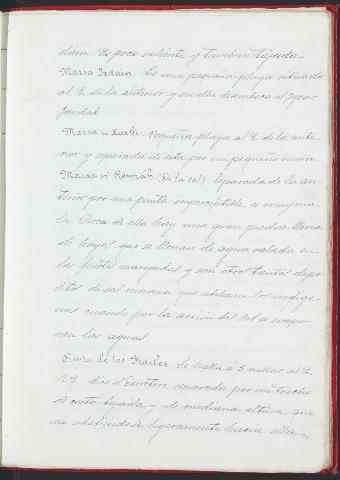 dain. Es poco saliente y tambien tajada.
Marsa Ixdain. Es una pequeña playa situada
al E. de la anterior y en ella desemboca el Igzar
Jandak
Marsa u Xarki. Pequeña playa al E. de la ante-
rior y separada de esta por un pequeño morro.
Marsa n' (De la sal). Separada de la an-
terior por una punta imperceptible, es muy ma-
la. Cerca de ella hay una gran piedra llena
de hoyos que se llenan de agua salada en
las fuertes marejadas y son otros tantos depó-
sitos de sal marina que utilizan los indige-
nas cuando por la acción del sol se evapo-
ran las aguas.
Punta de los Frailes. Se halla á 5 millas al E.
N.E. dice el Derrotero separada por un trecho
de costa tajada y de mediana altura que
va abatiendose ligeramente hacia ella,